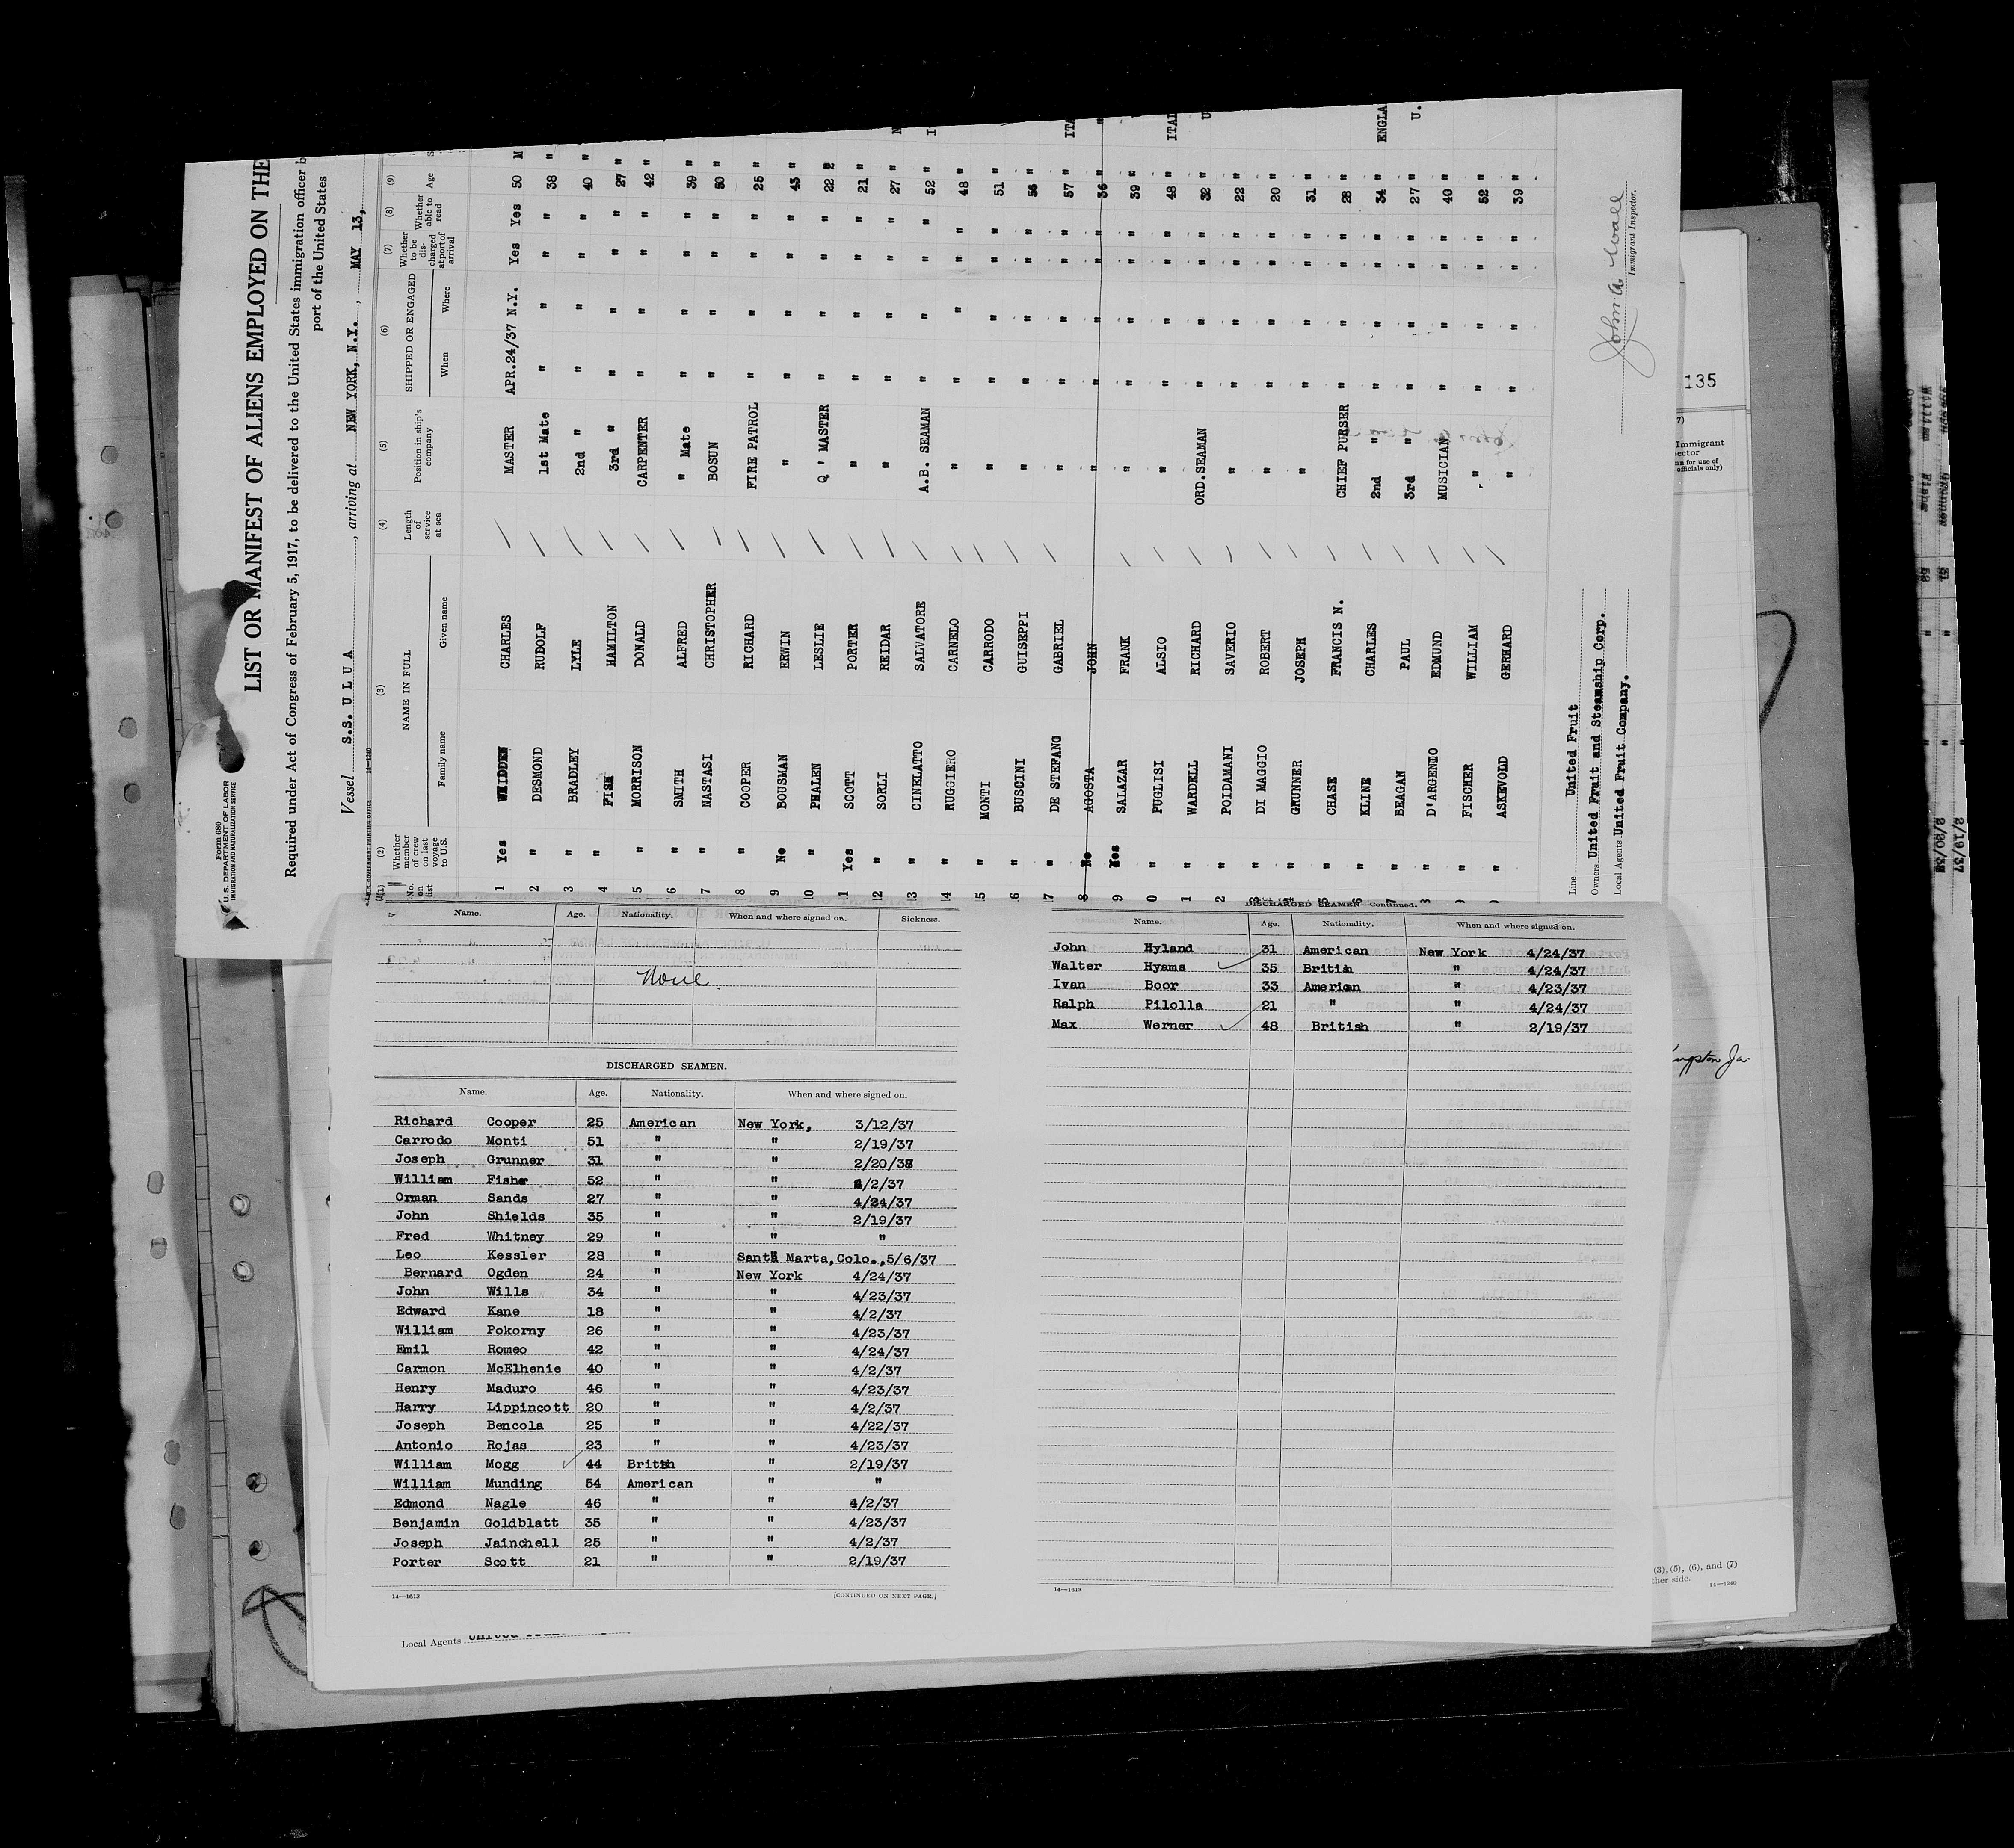 Form 680
U.S. DEPARTMENT OF LABOR
IMMIGRATION AND NATURALIZATION SERVICE
LIST OR MANIFEST OF ALIENS EMPLOYED ON THE
Required under Act of Congress of February 5, 1917, to be delivered to the United States immigration officer b
port of the United States
Vessel S.S. U L U A , arriving at NEW YORK, N.Y. , MAY 13,
(1) (2) (3) (4) (5) (6) (7) (8) (9)
No. on list Whether member of crew on last voyage to U.S. NAME IN FULL Length of service at sea Position in ship's company SHIPPED OR ENGAGED Whether to be discharged at port of arrival Whether able to read Age
Family name Given name When Where
1 Yes WHIDDEN CHARLES MASTER APR.24/37 N.Y. Yes Yes 50 M
2 " DESMOND RUDOLF 1st Mate " " " " 38 "
3 " BRADLEY LYLE 2nd " " " " " 40 "
4 " FISH HAMILTON 3rd " " " " " 27 "
5 " MORRISON DONALD CARPENTER " " " " 42 "
6 " SMITH ALFRED " Mate " " " " 39 "
7 " NASTASI CHRISTOPHER BOSUN " " " " 50 "
8 " COOPER RICHARD FIRE PATROL " " " " 25 "
9 No BOUSMAN ERWIN " " " " " 43 "
10 " PHALEN LESLIE Q' MASTER " " " " 22 "
11 Yes SCOTT PORTER " " " " " 21 "
12 " SORLI REIDAR " " " " " 27 " N
13 " CINELATTO SALVATORE A.B. SEAMAN " " " " 52 " I
14 " RUGGIERO CARNELO " " " " " 48 "
5 " MONTI CARRODO " " " " " 51 "
6 " BUSCINI GUISEPPI " " " " " 56 "
7 " DE STEFANO GABRIEL " " " " " 57 " ITA
8 No AGOSTA JOHN " " " " " 36 " "
9 Yes SALAZAR FRANK " " " " " 39 "
0 " FUGLISI ALSIO " " " " " 48 " ITAI
1 " WARDELL RICHARD ORD.SEAMAN " " " " 32 " U
2 " POIDAMANI SAVERIO " " " " " 22 "
3 " DI MAGGIO ROBERT " " " " " 20 "
4 " GRUNNER JOSEPH " " " " " 31 "
5 " CHASE FRANCIS N. CHIEF PURSER " " " " 28 "
6 " KLINE CHARLES 2nd " " " " " 34 " ENGLA
7 " BEAGAN PAUL 3rd " " " " " 27 " U.
8 " D'ARGENIO EDMUND MUSICIAN " " " " 40 "
9 " FISCHER WILLIAM " " " " " 52 "
0 " ASKEVOLD GERHARD " " " " " 39 "
Line United Fruit
Owners United Fruit and Steamship Corp.
Local Agents United Fruit Company.
John A. Wall
Immigrant Inspector.
Name. Age. Nationality. When and where signed on. Sickness.
None.
DISCHARGED SEAMEN.
Name. Age. Nationality. When and where signed on.
Richard Cooper 25 American New York, 3/12/37
Carrodo Monti 51 " " 2/19/37
Joseph Grunner 31 " " 2/20/37
William Fisher 52 " " 4/2/37
Orman Sands 27 " " 4/24/37
John Shields 35 " " 2/19/37
Fred Whitney 29 " " "
Leo Kessler 28 " Santa Marta, Colo.,5/6/37
Bernard Ogden 24 " New York 4/24/37
John Wills 34 " " 4/23/37
Edward Kane 18 " " 4/2/37
William Pokorny 26 " " 4/23/37
Emil Romeo 42 " " 4/24/37
Carmon McElhenie 40 " " 4/2/37
Henry Maduro 46 " " 4/23/37
Harry Lippincott 20 " " 4/2/37
Joseph Bencola 25 " " 4/22/37
Antonio Rojas 23 " " 4/23/37
William Mogg 44 British " 2/19/37
William Munding 54 American " "
Edmond Nagle 46 " " 4/2/37
Benjamin Goldblatt 35 " " 4/23/37
Joseph Jainchell 25 " " 4/2/37
Porter Scott 21 " " 2/19/37
14—1613 [CONTINUED ON NEXT PAGE.]
Local Agents
DISCHARGED SEAMEN—Continued.
Name. Age. Nationality. When and where signed on.
John Hyland 31 American New York 4/24/37
Walter Hyams 35 British " 4/24/37
Ivan Boor 33 American " 4/23/37
Ralph Pilolla 21 " " 4/24/37
Max Werner 48 British " 2/19/37
14—1613
135
Immigrant
(3), (5), (6), and (7)
ther side.
14—1240